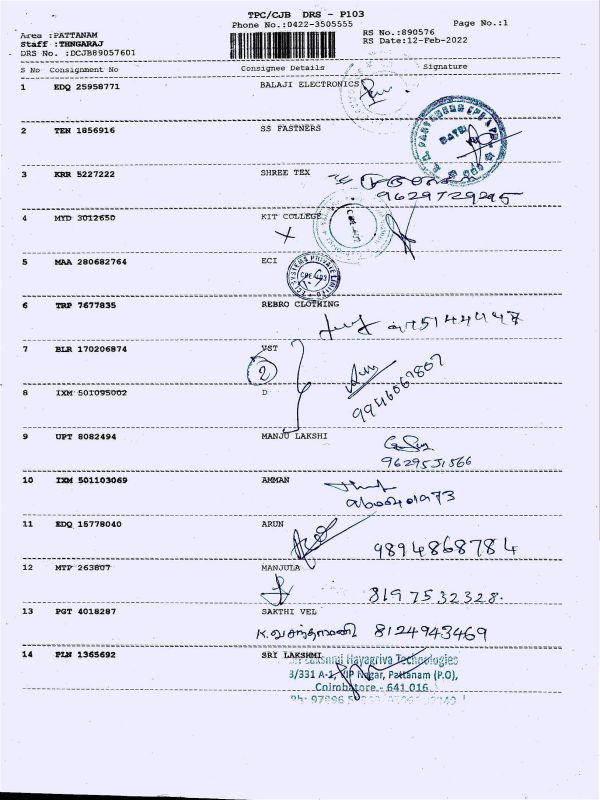 TPC/CJB DRS - P103
Phone No.:0422-3505555
Page No.:1
Area :PATTANAM
Staff :THNGARAJ
DRS No. :DCJB89057601
RS No.:890576
RS Date:12-Feb-2022
S No Consignment No Consignee Details Signature
1 EDQ 25958771 BALAJI ELECTRONICS
2 TEN 1856916 SS FASTNERS
3 KRR 5227222 SHREE TEX
9629729295
4 MYD 3012650 KIT COLLEGE
5 MAA 280682764 ECI
6 TRP 7677835 REBRO CLOTHING
7 BLR 170206874 VST
2
8 IXM 501095002 D
9946067807
9 UPT 8082494 MANJU LAKSHI
9629551566
10 IXM 501103069 AMMAN
11 EDQ 15778040 ARUN
9894868784
12 MTP 263807 MANJULA
8197532328
13 PGT 4018287 SAKTHI VEL
K.வசந்தாமணி 8124943469
14 PLN 1365692 SRI LAKSHMI
Lakshmi Hayagriva Technologies
3/331 A-1, VIP Nagar, Pattanam (P.O),
Coimbatore - 641 016